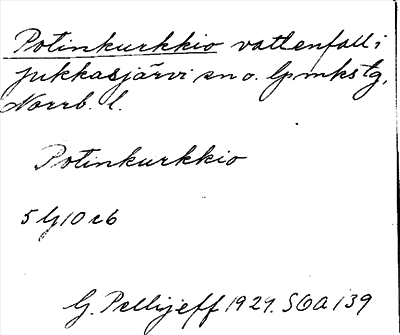 Potinkurkkio vattenfall i
Jukkasjärvi sn o. lpmkstg,
Norrb. l.
Potinkurkkio
G. Pellijeff 1929. SOA 139